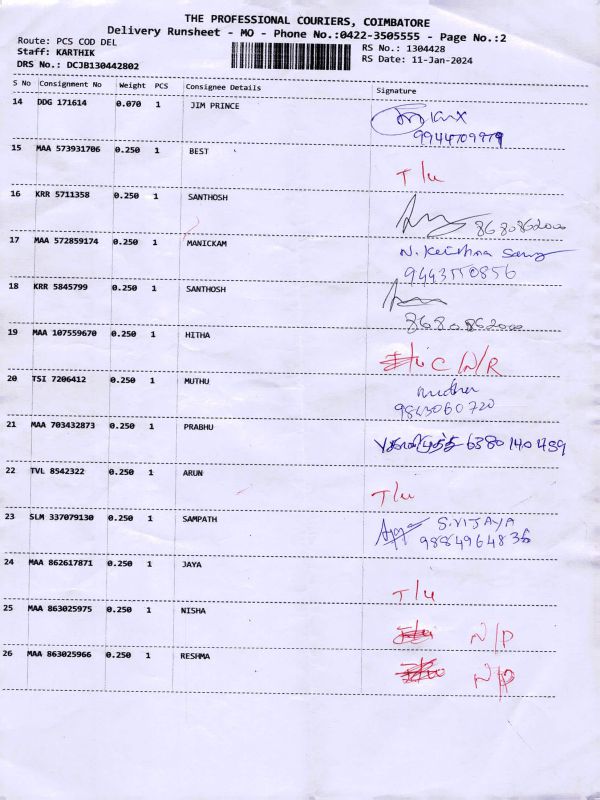 THE PROFESSIONAL COURIERS, COIMBATORE
Delivery Runsheet - MO - Phone No.:0422-3505555 - Page No.:2
Route: PCS COD DEL
RS No.: 1304428
Staff: KARTHIK
RS Date: 11-Jan-2024
DRS No.: DCJB130442802
S No Consignment No Weight PCS Consignee Details Signature
14 DDG 171614 0.070 1 JIM PRINCE
9944709979
15 MAA 573931706 0.250 1 BEST
T/u
16 KRR 5711358 0.250 1 SANTHOSH
8680862000
17 MAA 572859174 0.250 1 MANICKAM
N. Krishna
18 KRR 5845799 0.250 1 SANTHOSH
8680862000
19 MAA 107559670 0.250 1 HITHA
C N/R
20 TSI 7206412 0.250 1 MUTHU
9843060720
21 MAA 703432873 0.250 1 PRABHU
6380140459
22 TVL 8542322 0.250 1 ARUN
T/u
23 SLM 337079130 0.250 1 SAMPATH S.VIJAYA
9884964836
24 MAA 862617871 0.250 1 JAYA
T/u
25 MAA 863025975 0.250 1 NISHA N/P
26 MAA 863025966 0.250 1 RESHMA N/P